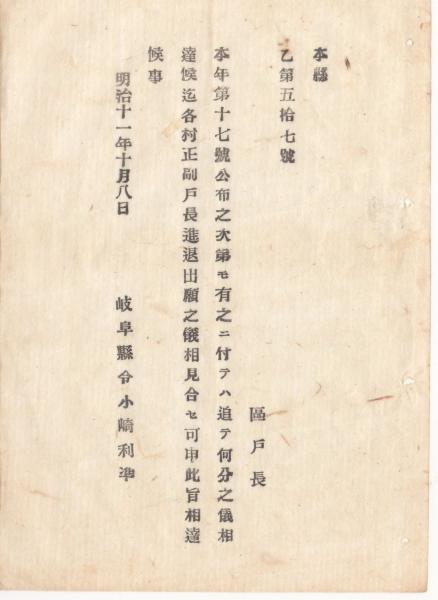 本縣
乙第五拾七號
區戸長
本年第十七號公布之次第モ有之ニ付テハ追テ何分之儀相
達候迄各村正副戸長進退出願之儀相見合セ可申此旨相達
候事
明治十一年十月八日
岐阜縣令小崎利準